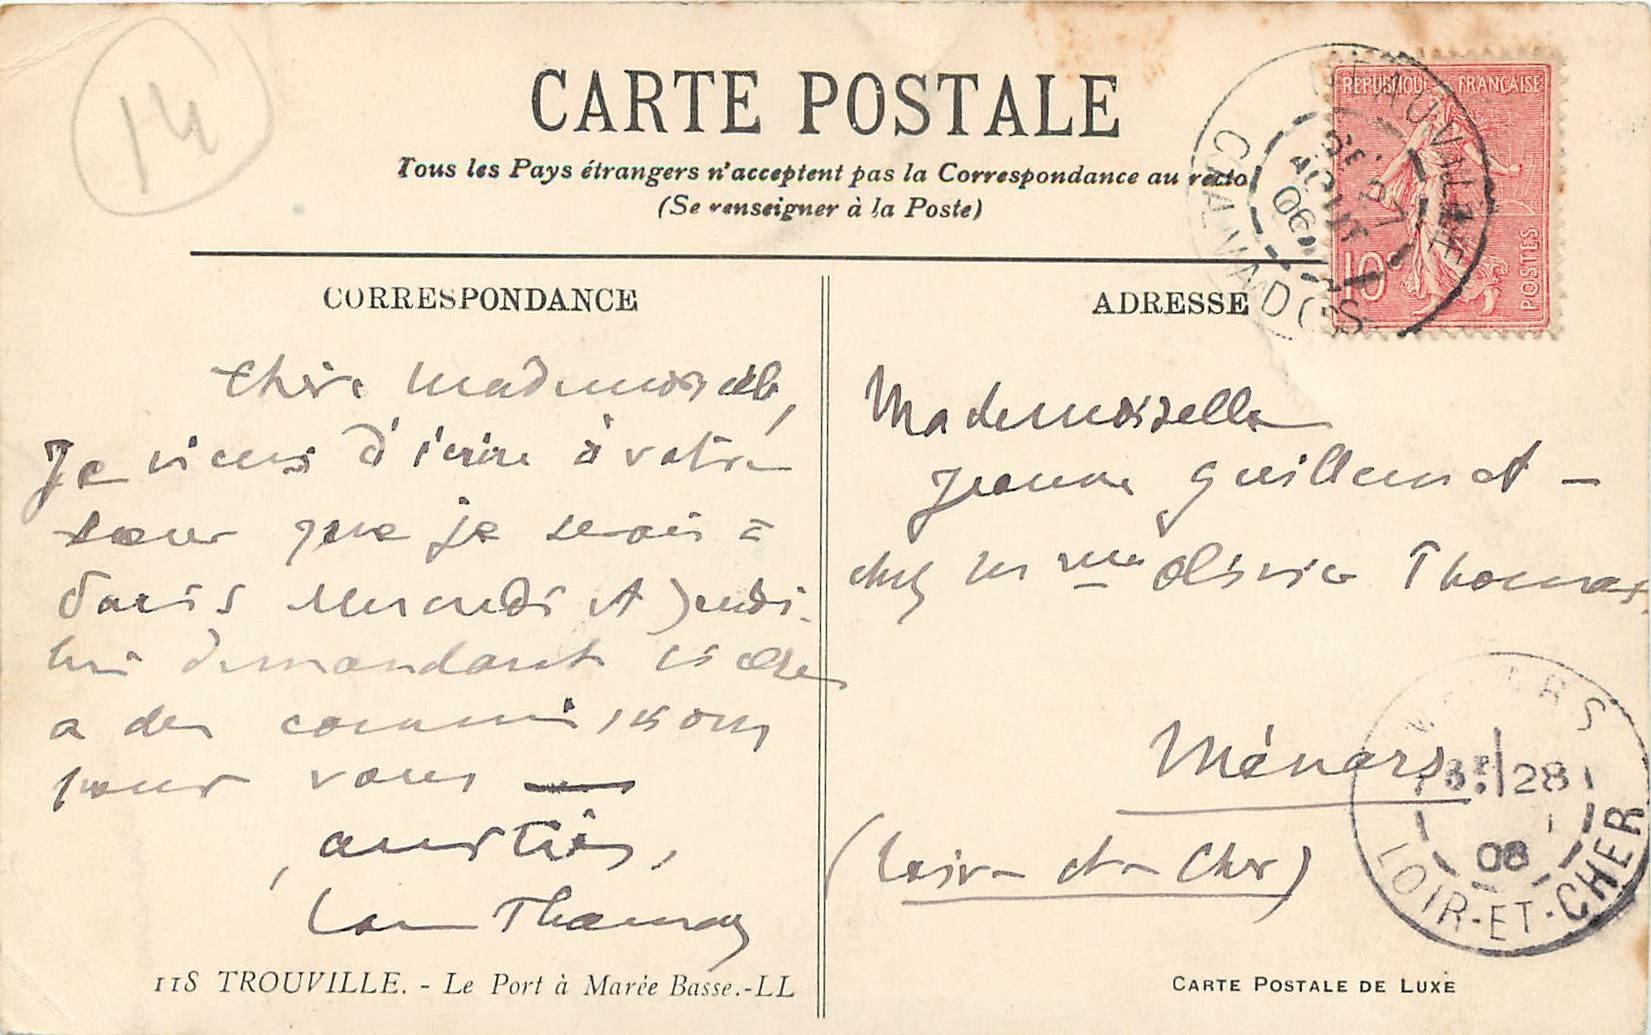 14
CARTE POSTALE
Tous les Pays étrangers n'acceptent pas la Correspondance au recto
(Se renseigner à la Poste)
REPUBLIQUE FRANÇAISE
10
POSTES
DEAUVILLE
CALVADOS
AOUT
06
CORRESPONDANCE
Chère Mademoiselle,
Je viens d'écrire à votre
sœur que je serais à
Paris Mercredi et Jeudi.
lui demandant si elle
a des commissions
pour vous
Léon Thomas
11S TROUVILLE. - Le Port à Marée Basse.-LL
ADRESSE
Mademoiselle
Jeanne Guillemet -
chez Mme Olivier Thomas
Ménars
(Loir et Cher)
MENARS
28
08
LOIR-ET-CHER
CARTE POSTALE DE LUXE